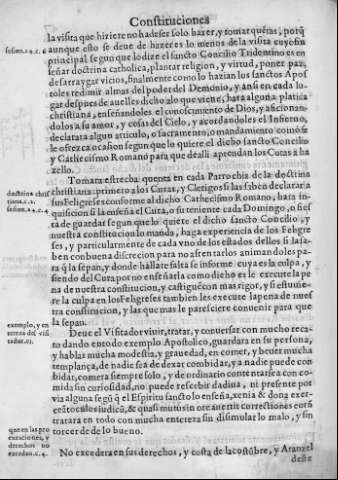 Constituciones
la visita que hiziere no ha de ser solo hazer, y tomar quẽtas, porq̃
sessio. 24. c. 3
aunque esto se deue de hazer es lo menos de la visita cuyo fin
principal segun que lo dize el sancto Concilio Tridentino es en
señar doctrina catholica, plantar religion, y virtud, poner paz,
desarraygar vicios, finalmente como lo hazian los sanctos Apos
toles redimir almas del poder del Demonio, y ansi en cada lu
gar despues de auelles dicho a lo que viene, hara alguna platica
christiana, enseñandoles el conoscimiento de Dios, y aficionan
dolos a su amor, y cosas del Cielo, y acordandoles el Infierno,
declarara algun articulo, o sacramento, o mandamiento como se
le ofrezca ocasion segun que lo quiere el dicho sancto Concilio
y Cathecismo Romano para que de alli aprendan los Curas a ha
zello.
Tomara estrecha quenta en cada Parrochia de la doctrina
doctrina chris
tiana. c. 2.
sessio. 24. c. 4
christiana: primero a los Curas, y Clerigos si las saben declarar a
sus Feligreses conforme al dicho Cathecismo Romano, hara in
quisicion si la enseña el Cura, o su teniente cada Domingo, o fies
ta de guardar segun que lo quiere el dicho sancto Concilio, y
nuestra constitucion lo manda, haga experiencia de los Feligre
ses, y particularmente de cada vno de los estados dellos si la sa
ben con buena discrecion para no afrentarlos animandoles pa-
ra q̃ la sepan, y donde hallare falta se informe cuya es la culpa, y
siendo del Cura, por no enseñarla como dicho es le execute la pe
na de nuestra constitucion, y castiguelo con mas rigor, y si estuuie
re la culpa en los Feligreses tambien les execute la pena de nues
tra constitucion, y las que mas le paresciere conuenir para que
la sepan.
exemplo, y en
tereza del visi
tador.
Deue el Visitador viuir, tratar, y conuersar con mucho reca
to dando en todo exemplo Apostolico, guardara en su persona,
y hablas mucha modestia, y grauedad, en comer, y beuer mucha
templança, de nadie se a de dexar combidar, y a nadie puede con
bidar, comera siempre solo, y de ordinario contentarse a con co
mida sin curiosidad, no puede rescebir dadiua, ni presente por
via alguna
tratara en todo con mucha entereza sin disimular lo malo, y sin
torcer de lo bueno.
que en las pro
curaciones, y
derechos no
excedan. c. 4.
No excedera en sus derechos, y costa de la costũbre, y Aranzel
deste